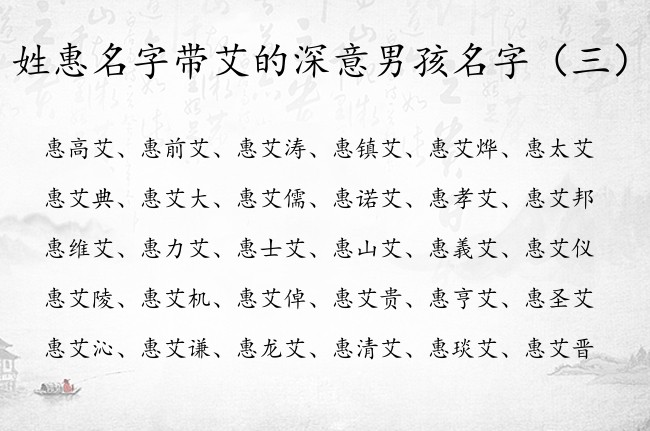 姓惠名字带艾的深意男孩名字（三）
惠高艾、惠前艾、惠艾涛、惠镇艾、惠艾烨、惠太艾
惠艾典、惠艾大、惠艾儒、惠诺艾、惠孝艾、惠艾邦
惠维艾、惠力艾、惠士艾、惠山艾、惠義艾、惠艾仪
惠艾陵、惠艾机、惠艾倬、惠艾贵、惠亨艾、惠圣艾
惠艾沁、惠艾谦、惠龙艾、惠清艾、惠琰艾、惠艾晋